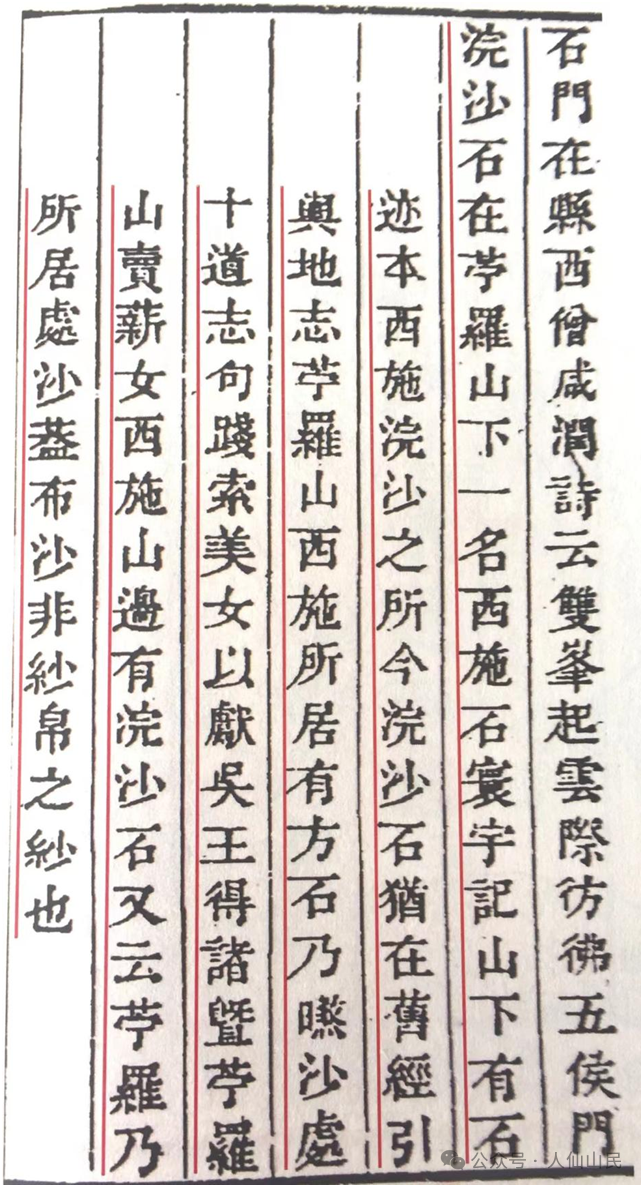 石門在縣西僧咸潤詩云雙峯起雲際彷彿五侯門
浣沙石在苧羅山下一名西施石寰宇記山下有石
迹本西施浣沙之所今浣沙石猶在舊經引
輿地志苧羅山西施所居有方石乃曬沙處
十道志句踐索美女以獻吳王得諸暨苧羅
山賣薪女西施山邊有浣沙石又云苧羅乃
所居處沙葢布沙非紗帛之紗也
公众号·人仙山民